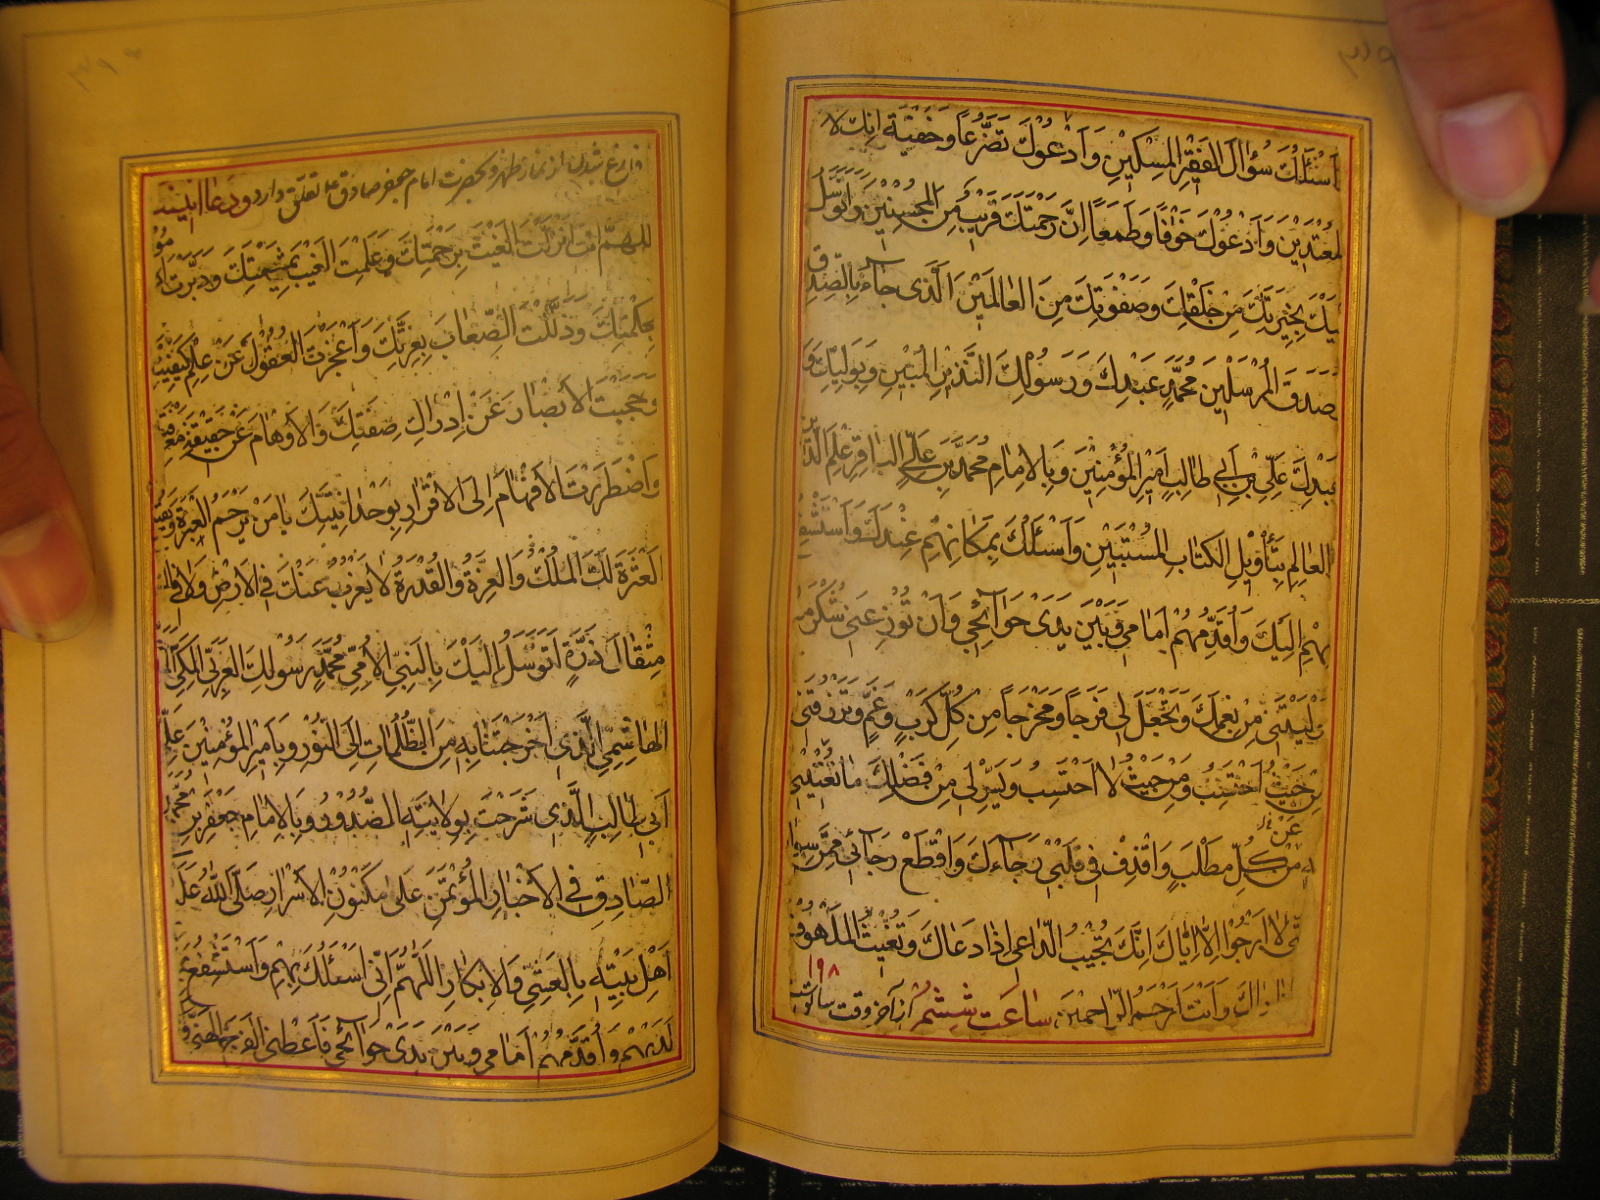 اَسْئَلُكَ سُؤالَ الفَقيرِ المِسْكينِ وَاَدْعُوكَ تَضَرُّعاً وَخَفيَةً اِنَّكَ لا
لمُعْتَدينَ وَاَدْعُوكَ خَوْفاً وَطَمَعاً اِنَّ رَحْمَتَكَ قَريبٌ مِنَ المُحْسِنينَ وَاَتَوَسَّلُ
لَيْكَ بِخِيَرَتِكَ مِنْ خَلْقِكَ وَصَفْوَتِكَ مِنَ العالَمينَ الَّذى جاءَ بِالصِّدْقِ
وَصَدَّقَ المُرْسَلينَ مُحَمَّدٍ عَبْدِكَ وَرَسُولِكَ النَّذيرِ المُبينِ وَبِوَليِّكَ وَ
عَبْدِكَ عَلِيِّ بْنِ اَبي طالِبٍ اَميرِ المُؤْمِنينَ وَبِالاِمامِ مُحَمَّدِ بْنِ عَلِيٍّ الباقِرِ عِلْمِ الدّينِ
العالِمِ بِتَأْويلِ الكِتابِ المُسْتَبينِ وَاَسْئَلُكَ بِمَكانِهِمْ عِنْدَكَ وَاَسْتَشْفِعُ
بِهِمْ اِلَيْكَ وَاُقَدِّمُهُمْ اَمامي وَبَيْنَ يَدَىْ حَوائِجي وَاَنْ تُوزِعَني شُكْرَ ما
اَوْلَيْتَني مِنْ نِعَمِكَ وَتَجْعَلَ لي فَرَجاً وَمَخْرَجاً مِنْ كُلِّ كَرْبٍ وَغَمٍّ وَتَرْزُقَني
مِنْ حَيْثُ اَحْتَسِبُ وَمِنْ حَيْثُ لا اَحْتَسِبُ وَيَسِّرْ لي مِنْ فَضْلِكَ ما تُغْنيني
بِهِ مِنْ كُلِّ مَطْلَبٍ وَاقْذِفْ في قَلْبي رَجاءَكَ وَاقْطَعْ رَجائي مِمَّنْ سِواكَ
حَتّى لا اَرْجُوَ اِلاّ اِيّاكَ اِنَّكَ تُجيبُ الدّاعِيَ اِذا دَعاكَ وَتُغيثُ المَلْهُوفَ
وَاَنْتَ اَرْحَمُ الرّاحِمينَ ساعَت شِشُم از آخر وقت
١٩٨
فارغ شدن از نماز ظهر و بحضرت امام جعفر صادق ع تعلق دارد ودعا اينست
اللّهُمَّ اَنْتَ اَنْزَلْتَ الغَيْثَ بِرَحْمَتِكَ وَعَلِمْتَ الغَيْبَ بِمَشِيَّتِكَ وَدَبَّرْتَ الاُمُورَ
بِحِكْمَتِكَ وَذَلَّلْتَ الصِّعابَ بِعِزَّتِكَ وَاَعْجَزْتَ العُقُولَ عَنْ عِلْمِ كَيْفِيَّتِكَ
وَحَجَبْتَ الاَبْصارَ عَنْ اِدْراكِ صِفَتِكَ وَالاَوْهامَ عَنْ حَقيقَةِ مَعْرِفَتِكَ
وَاضْطَرَرْتَ الاَفْهامَ اِلَى الاِقْرارِ بِوَحْدانِيَّتِكَ يا مَنْ يَرْحَمُ العَبْرَةَ وَيُقيلُ
العَثْرَةَ لَكَ المُلْكُ وَالعِزَّةُ وَالقُدْرَةُ لا يَعْزُبُ عَنْكَ فِي الاَرْضِ وَلا فِي السَّماءِ
مِثْقالُ ذَرَّةٍ اَتَوَسَّلُ اِلَيْكَ بِالنَّبِيِّ الاُمِّيِّ مُحَمَّدٍ رَسُولِكَ العَرَبِيِّ المَكِّيِّ المَدَنِيِّ
الهاشِمِيِّ الَّذى اَخْرَجْتَنا بِهِ مِنَ الظُّلُماتِ اِلَى النُّورِ وَبِاَميرِ المُؤْمِنينَ عَلِيِّ بْنِ
اَبي طالِبٍ الَّذى شَرَحْتَ بِوِلايَتِهِ الصُّدُورَ وَبِالاِمامِ جَعْفَرِ بْنِ مُحَمَّدٍ
الصّادِقِ فِي الاَخْبارِ المُؤْتَمَنِ عَلى مَكْنُونِ الاَسْرارِ صَلَّى اللّهُ عَلَيْهِ وَعَلى
اَهْلِ بَيْتِهِ بِالعَشِيِّ وَالاِبْكارِ اللّهُمَّ اِنّي اَسْئَلُكَ بِهِمْ وَاَسْتَشْفِعُ
لَدَيْهِمْ وَاُقَدِّمُهُمْ اَمامي وَبَيْنَ يَدَىْ حَوائِجي فَاَعْطِني الفَرَجَ الهَنيءَ وَ